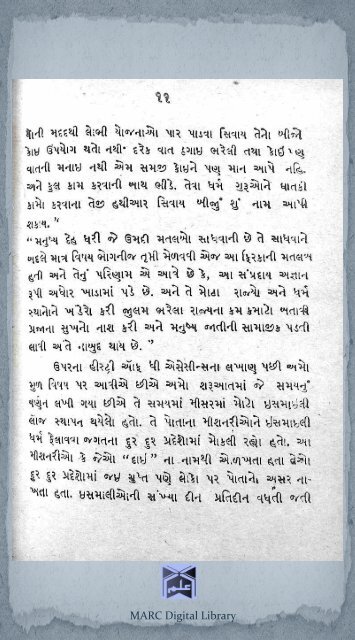 ૧૧
ાની મદદથી લોભી યોજનાઓ પાર પાડવા સિવાય તેનો બીજો
કોઇ ઉપયોગ થતો નથી. દરેક વાત દગાઇ ભરેલી તથા કોઈ પણ
વાતની મનાઇ નથી એમ સમજી કોઇને પણ માન આપે નહિ.
અને કુલ કામ કરવાની બાથ ભીડે. તેવા ધર્મ ગુરૂઓને ઘાતકી
કામો કરવાના તેજી હથીઆર સિવાય બીજું શું નામ આપી
શકાય. ”
“ મનુષ્ય દેહ ધરી જે ઉમદા મતલબો સાધવાની છે તે સાધવાને
બદલે માત્ર વિષય ભોગનીજ તૃપ્તી મેળવવી એજ આ ફિરકાની મતલબ
હતી અને તેનું પરિણામ એ આવે છે કે, આ સંપ્રદાય અજ્ઞાન
રૂપી અંધાર ખાડામાં પડે છે. અને તે મોટા રાજ્યો અને ધર્મ
સ્થાનોને ખંડેરો કરી જુલમ ભરેલા રાજ્યના કમકમાટો બતાવી
પ્રજાના સુખનો નાશ કરી અને મનુષ્ય જાતીની સામાજીક પડતી
લાવી અંતે નાબુદ થાય છે. ”
ઉપરના હીસ્ટ્રી ઑફ ધી એસેસીન્સના લખાણ પછી અમો
મુળ વિષય પર આવીએ છીએ અમો શરૂઆતમાં જે સમયનું
વર્ણન લખી ગયા છીએ તે સમયમાં મીસરમાં મોટો ઇસમાઇલી
લોજ સ્થાપન થયેલો હતો. તે પોતાના મીશનરીઓને ઇસમાઇલી
ધર્મ ફેલાવવા જગતના દુર દુર પ્રદેશોમાં મોકલી રહ્યો હતો. આ
મીશનરીઓ કે જેઓ “ દાઇ ” ના નામથી ઓળખતા હતા તેઓ
દુર દુર પ્રદેશોમાં જઇ ગુપ્ત પણે લોકો પર પોતાનો અસર ના-
ખતા હતા. ઇસમાલીઓની સંખ્યા દીન પ્રતિદીન વધતી જતી
MARC Digital Library